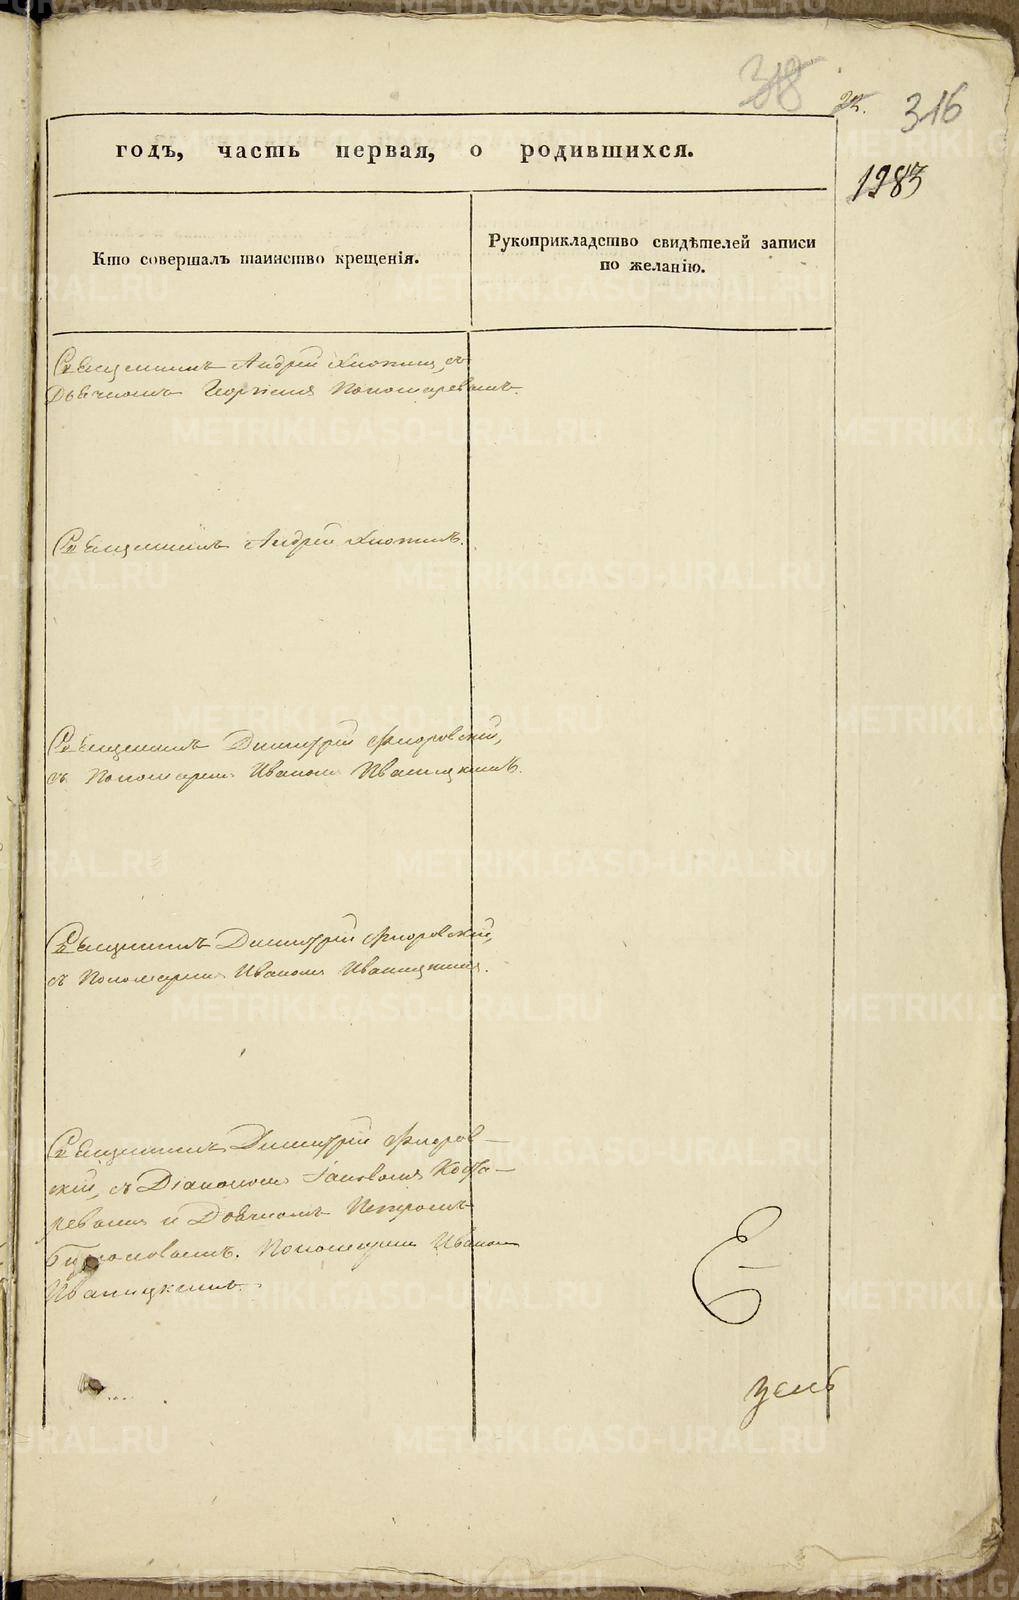 318
22.
316
1983
годъ, часть первая, о родившихся.
Кто совершалъ таинство крещенія.
Рукоприкладство свидѣтелей записи
по желанію.
Священникъ Андрей съ
Дьячкомъ Георгіемъ Пономаревымъ.
Священникъ Андрей
Священникъ Димитрій Флоровскій,
съ Пономаремъ Иваномъ Иваницкимъ.
Священникъ Димитрій Флоровскій,
съ Пономаремъ Иваномъ Иваницкимъ.
Священникъ Димитрій Флоров-
скій, съ Діакономъ Іаковомъ
и Дьячкомъ Петромъ
Пономаремъ Иваномъ
Иваницкимъ.
METRIKI.GASO-URAL.RU